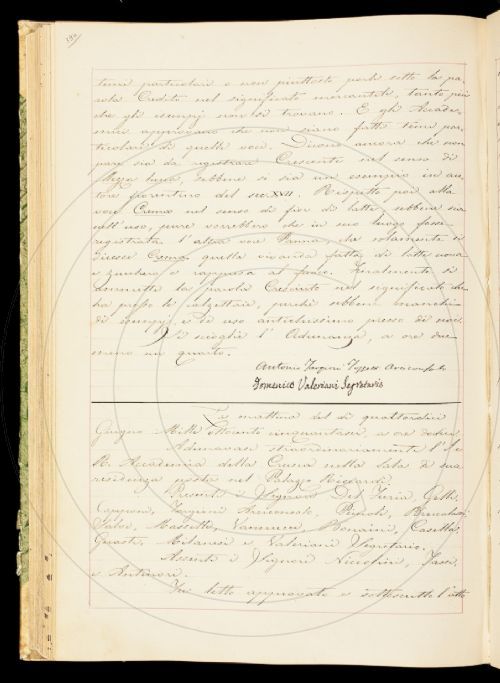 temi particolari o non piuttosto porli sotto la pa-
rola Credito nel significato mercantile, tanto più
che gli esempj non si trovano. E gli Accade-
mici approvano che non siano fatti temi par-
ticolari di quelle voci. Dicono ancora che non
pare sia da registrare Crescente nel senso di
Mezza luna, sebbene vi sia un esempio in au-
tore fiorentino del sec. XVII. Rispetto poi alla
voce Crema nel senso di fior di latte, sebbene sia
nell'uso, pure vorrebbero che in suo luogo fosse
registrata l'altra voce Panna, che solamente si
dicesse Crema quella vivanda fatta di latte, uova
e zucchero e rappresa al fuoco. Finalmente si
ammette la parola Crescinto nel significato che
ha presso le
di esempj, e di uso antichissimo presso di noi.
Si scioglie l'Adunanza, a ore due
meno un quarto.
Antonio Targioni Tozzetti Arciconsolo
Domenico Valeriani Segretario
La mattina del dì quattordici
Giugno Mille ottocento cinquantasei, a ore dodici
Adunavasi straordinariamente l'I. e
R. Accademia della Crusca nella Sala di sua
residenza posta nel Palazzo Riccardi.
Presenti i Signori Del Furia, Gelli,
Capponi, Targioni Arciconsolo, Bindi, Brucalassi,
Taber, Masselli, Vannucci, Bonaini, Casella,
Gerati, Milanesi e Valeriani Segretario.
Assenti i Signori Niccolini,
e Antinori.
Fu letto approvato e sottoscritto l'atto